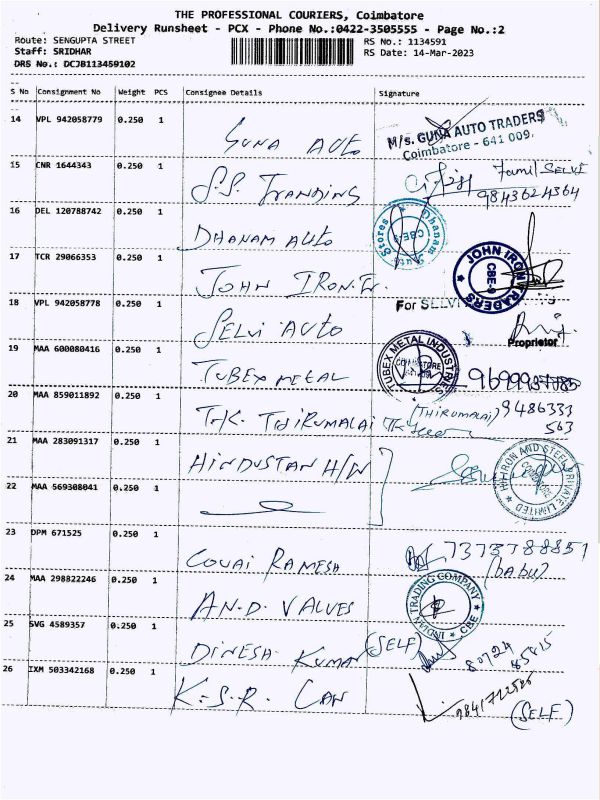 THE PROFESSIONAL COURIERS, Coimbatore
Delivery Runsheet - PCX - Phone No.:0422-3505555 - Page No.:2
Route: SENGUPTA STREET
RS No.: 1134591
Staff: SRIDHAR
RS Date: 14-Mar-2023
DRS No.: DCJB113459102
S No Consignment No Weight PCS Consignee Details Signature
14 VPL 942058779 0.250 1 Guna Auto
M/s. GUNA AUTO TRADERS
Coimbatore - 641 009.
15 CNR 1644343 0.250 1 S.S. Trandins
Tamil SELVI
9843624364
16 DEL 120788742 0.250 1 Dhanam Auto
Dhanam Auto Stores CBE-9
17 TCR 29066353 0.250 1 John Iron.Tr.
JOHN IRON TRADERS CBE-9
18 VPL 942058778 0.250 1 Selvi Auto
For SELVI
Proprietor
19 MAA 600080416 0.250 1 Tubex Metal
TUBEX METAL INDUSTRIES
20 MAA 859011892 0.250 1 T.K. Thirumalai
(THIRUMALAI) 9486333
563
21 MAA 283091317 0.250 1 Hindustan H/W
HI IRON AND STEEL PRIVATE LIMITED
22 MAA 569308041 0.250 1
23 DPM 671525 0.250 1 Covai Ramesh
7373788851
(babu)
24 MAA 298822246 0.250 1 AN.D. Valves
TRADING COMPANY CBE
25 SVG 4589357 0.250 1 Dinesh Kumar (SELF)
80724
85815
26 IXM 503342168 0.250 1 K.S.R. Can
(SELF)